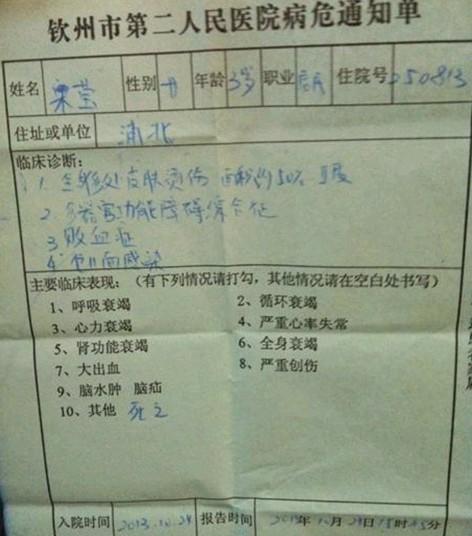 钦州市第二人民医院病危通知单
姓名 性别 年龄 3岁 职业 住院号 050813
住址或单位 浦北
临床诊断：
1. 全身多处皮肤烫伤 面积约50%
2. 多器官功能障碍综合征
3 败血症
4. 创面感染
主要临床表现：（有下列情况请打勾，其他情况请在空白处书写）
1、呼吸衰竭 2、循环衰竭
3、心力衰竭 4、严重心率失常
5、肾功能衰竭 6、全身衰竭
7、大出血 8、严重创伤
9、脑水肿 脑疝
10、其他 死亡
入院时间 2013.10.24 报告时间